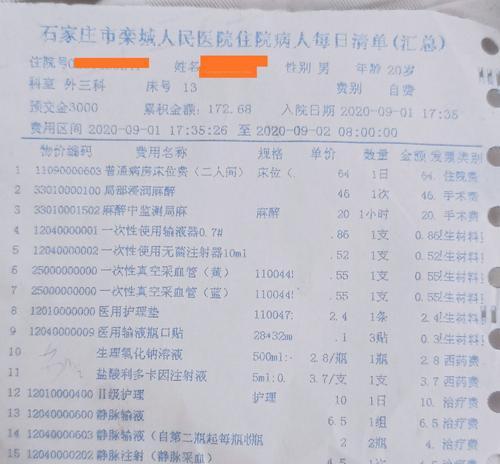 石家庄市栾城人民医院住院病人每日清单(汇总)
住院号 姓名 性别 男 年龄 20岁
科室 外三科 床号 13 费别 自费
预交金3000 累积金额: 172.68 入院日期 2020-09-01 17:35
费用区间 2020-09-01 17:35:26 至 2020-09-02 08:00:00
物价编码 费用名称 规格 单价 数量 金额 发票类别
1 11090000603 普通病房床位费(二人间) 床位(. 64 1日 64. 住院费
2 33010000100 局部浸润麻醉 46 1次 46. 手术费
3 33010001502 麻醉中监测局麻 麻醉 20 1小时 20. 手术费
4 12040000001 一次性使用输液器0.7# .86 1支 0.86 生材料
5 12040000002 一次性使用无菌注射器10ml .52 1支 0.52 生材料
6 25000000000 一次性真空采血管(黄) 110044 .55 1支 0.55 生材料
7 25000000000 一次性真空采血管(蓝) 110044 .55 1支 0.55 生材料
8 12010000000 医用护理垫 110047: 2.4 1条 2.4 生材料
9 12040000009 医用输液瓶口贴 28*32mm .1 3贴 0.3 生材料
10 生理氯化钠溶液 500ml: 2.8/瓶 1瓶 2.8 西药费
11 盐酸利多卡因注射液 5ml:0. 3.7/支 1支 3.7 西药费
12 12010000400 II级护理 护理 10 1日 10. 治疗费
13 12040000600 静脉输液 6.5 1组 6.5 治疗费
14 12040000603 静脉输液(自第二瓶起每瓶收 2 2瓶 4. 治疗费
15 12040000202 静脉注射(静脉采血) 4.5 1次 治疗费